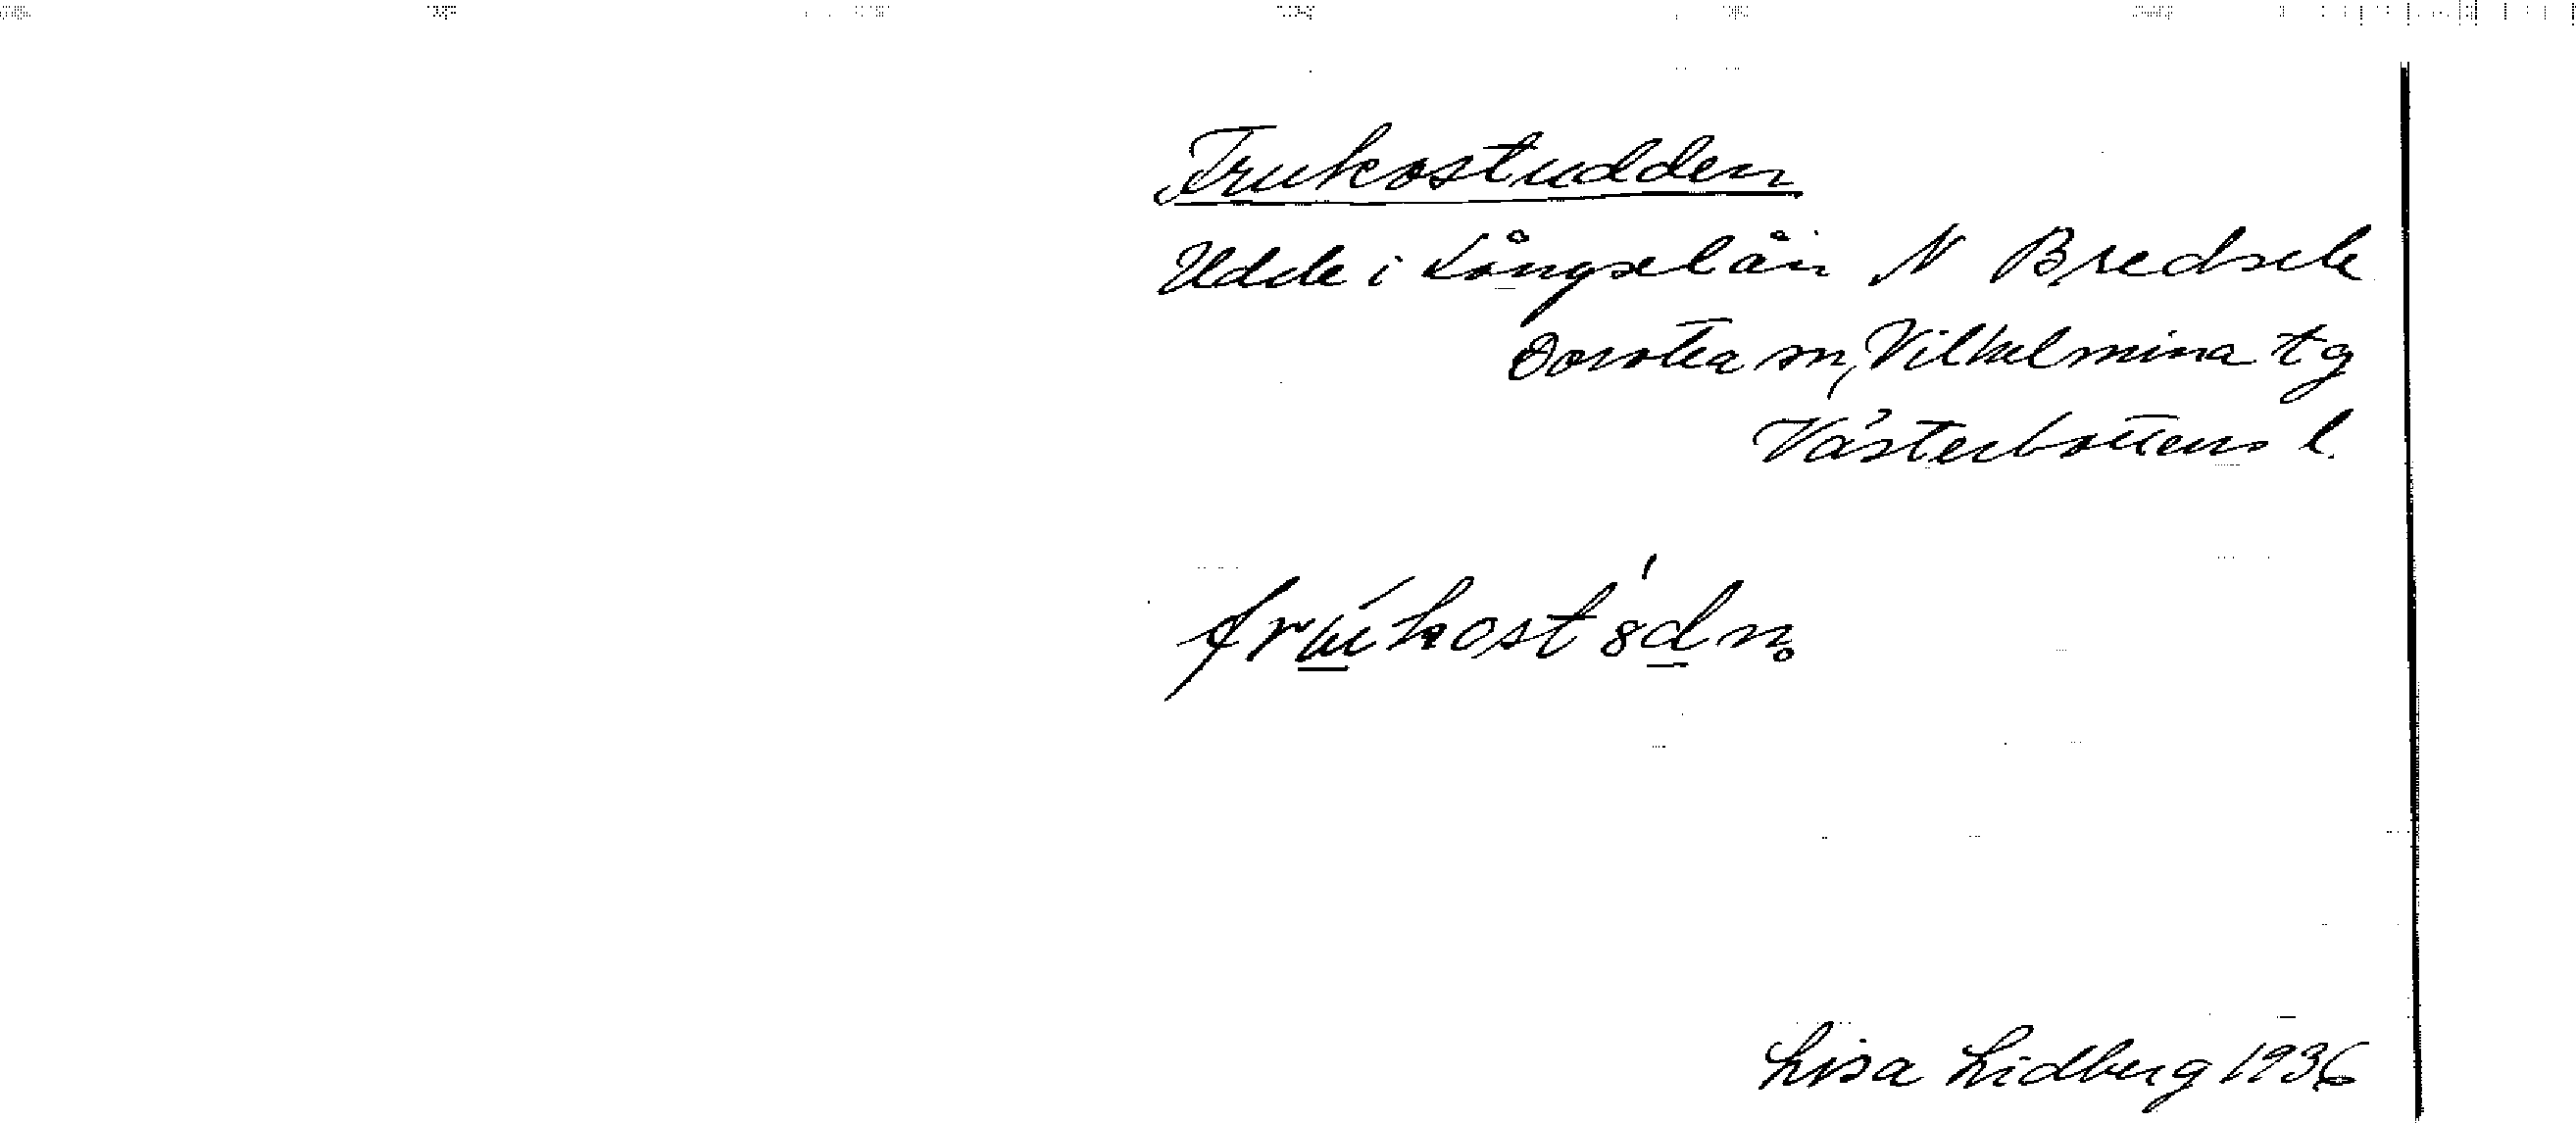 Frukostudden
Udde i Långselån N Bredsele
Dorotea sn, Vilhelmina tg
Västerbottens l.
Lisa Lidberg 1936